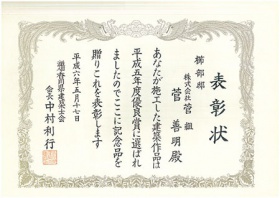 表彰状
櫛部邸
株式会社 菅組
菅 善明殿
あなたが施工した建築作品は
平成五年度優良賞に選ばれ
ましたのでここに記念品を
贈りこれを表彰します
平成六年五月十七日
会長 中村利行